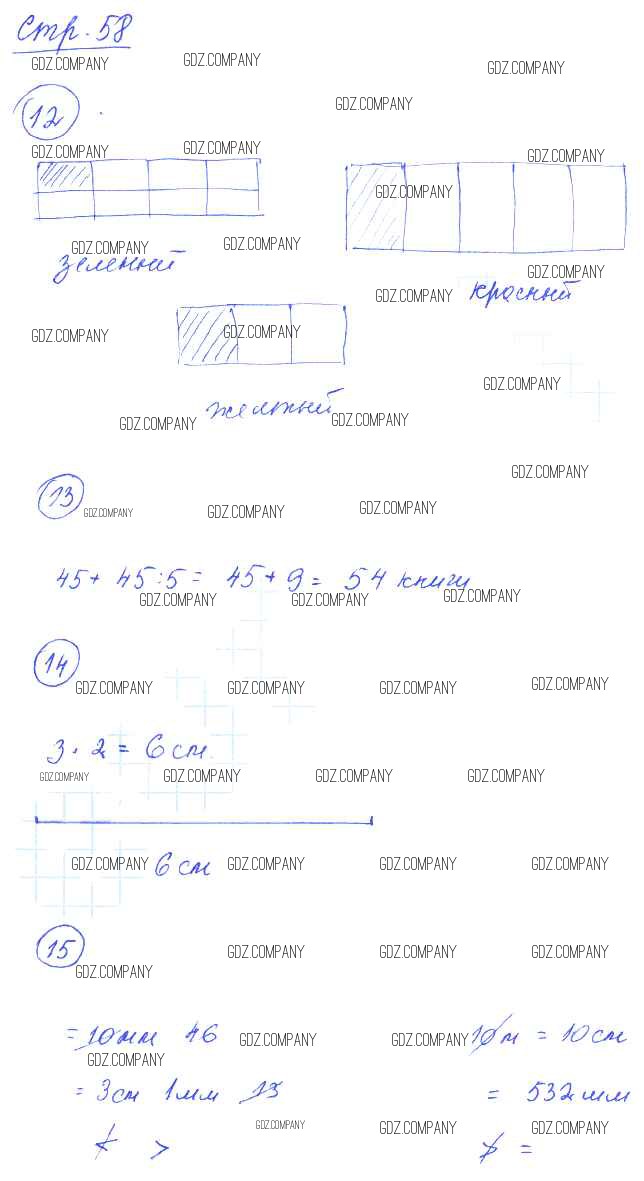 Стр. 58
GDZ.COMPANY GDZ.COMPANY GDZ.COMPANY
12 GDZ.COMPANY
GDZ.COMPANY GDZ.COMPANY GDZ.COMPANY
GDZ.COMPANY
GDZ.COMPANY GDZ.COMPANY
зеленый GDZ.COMPANY
GDZ.COMPANY красный
GDZ.COMPANY GDZ.COMPANY
GDZ.COMPANY
желтый
GDZ.COMPANY GDZ.COMPANY
GDZ.COMPANY
13 GDZ.COMPANY GDZ.COMPANY GDZ.COMPANY
45 + 45 : 5 = 45 + 9 = 54 книги
GDZ.COMPANY GDZ.COMPANY GDZ.COMPANY
14
GDZ.COMPANY GDZ.COMPANY GDZ.COMPANY GDZ.COMPANY
3 · 2 = 6 см.
GDZ.COMPANY GDZ.COMPANY GDZ.COMPANY GDZ.COMPANY
GDZ.COMPANY 6 см GDZ.COMPANY GDZ.COMPANY GDZ.COMPANY
15 GDZ.COMPANY GDZ.COMPANY GDZ.COMPANY
GDZ.COMPANY
= 10 мм 46 GDZ.COMPANY GDZ.COMPANY 10 м = 10 см
GDZ.COMPANY
= 3 см 1 мм 13 = 532 мм
GDZ.COMPANY GDZ.COMPANY GDZ.COMPANY
> =